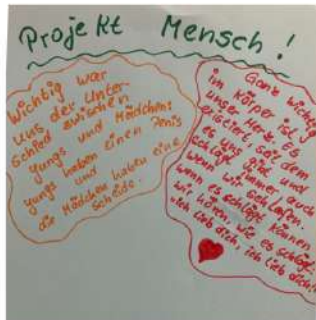 Projekt Mensch!
Wichtig war
uns der Unter-
schied zwischen
yungs und Mädchen:
yungs haben einen Penis
und
die Mädchen haben eine
Scheide.
Ganz wichtig
im Körper ist
unser Herz. Es
existiert, seit dem
es uns gibt und
schlägt immer auch
wenn wir schlafen.
wenn es schlägt können
wir hören, wie es schlägt:
ich lieb dich, ich lieb dich!